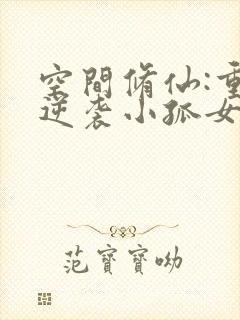 空間脩仙:重
逆袭小孤女
范寶寶呦